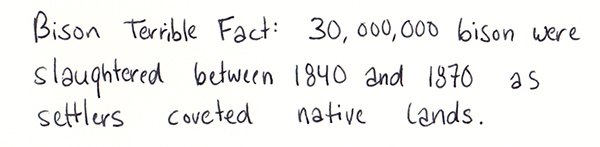 Bison Terrible Fact: 30,000,000 bison were
slaughtered between 1840 and 1870 as
settlers coveted native lands.